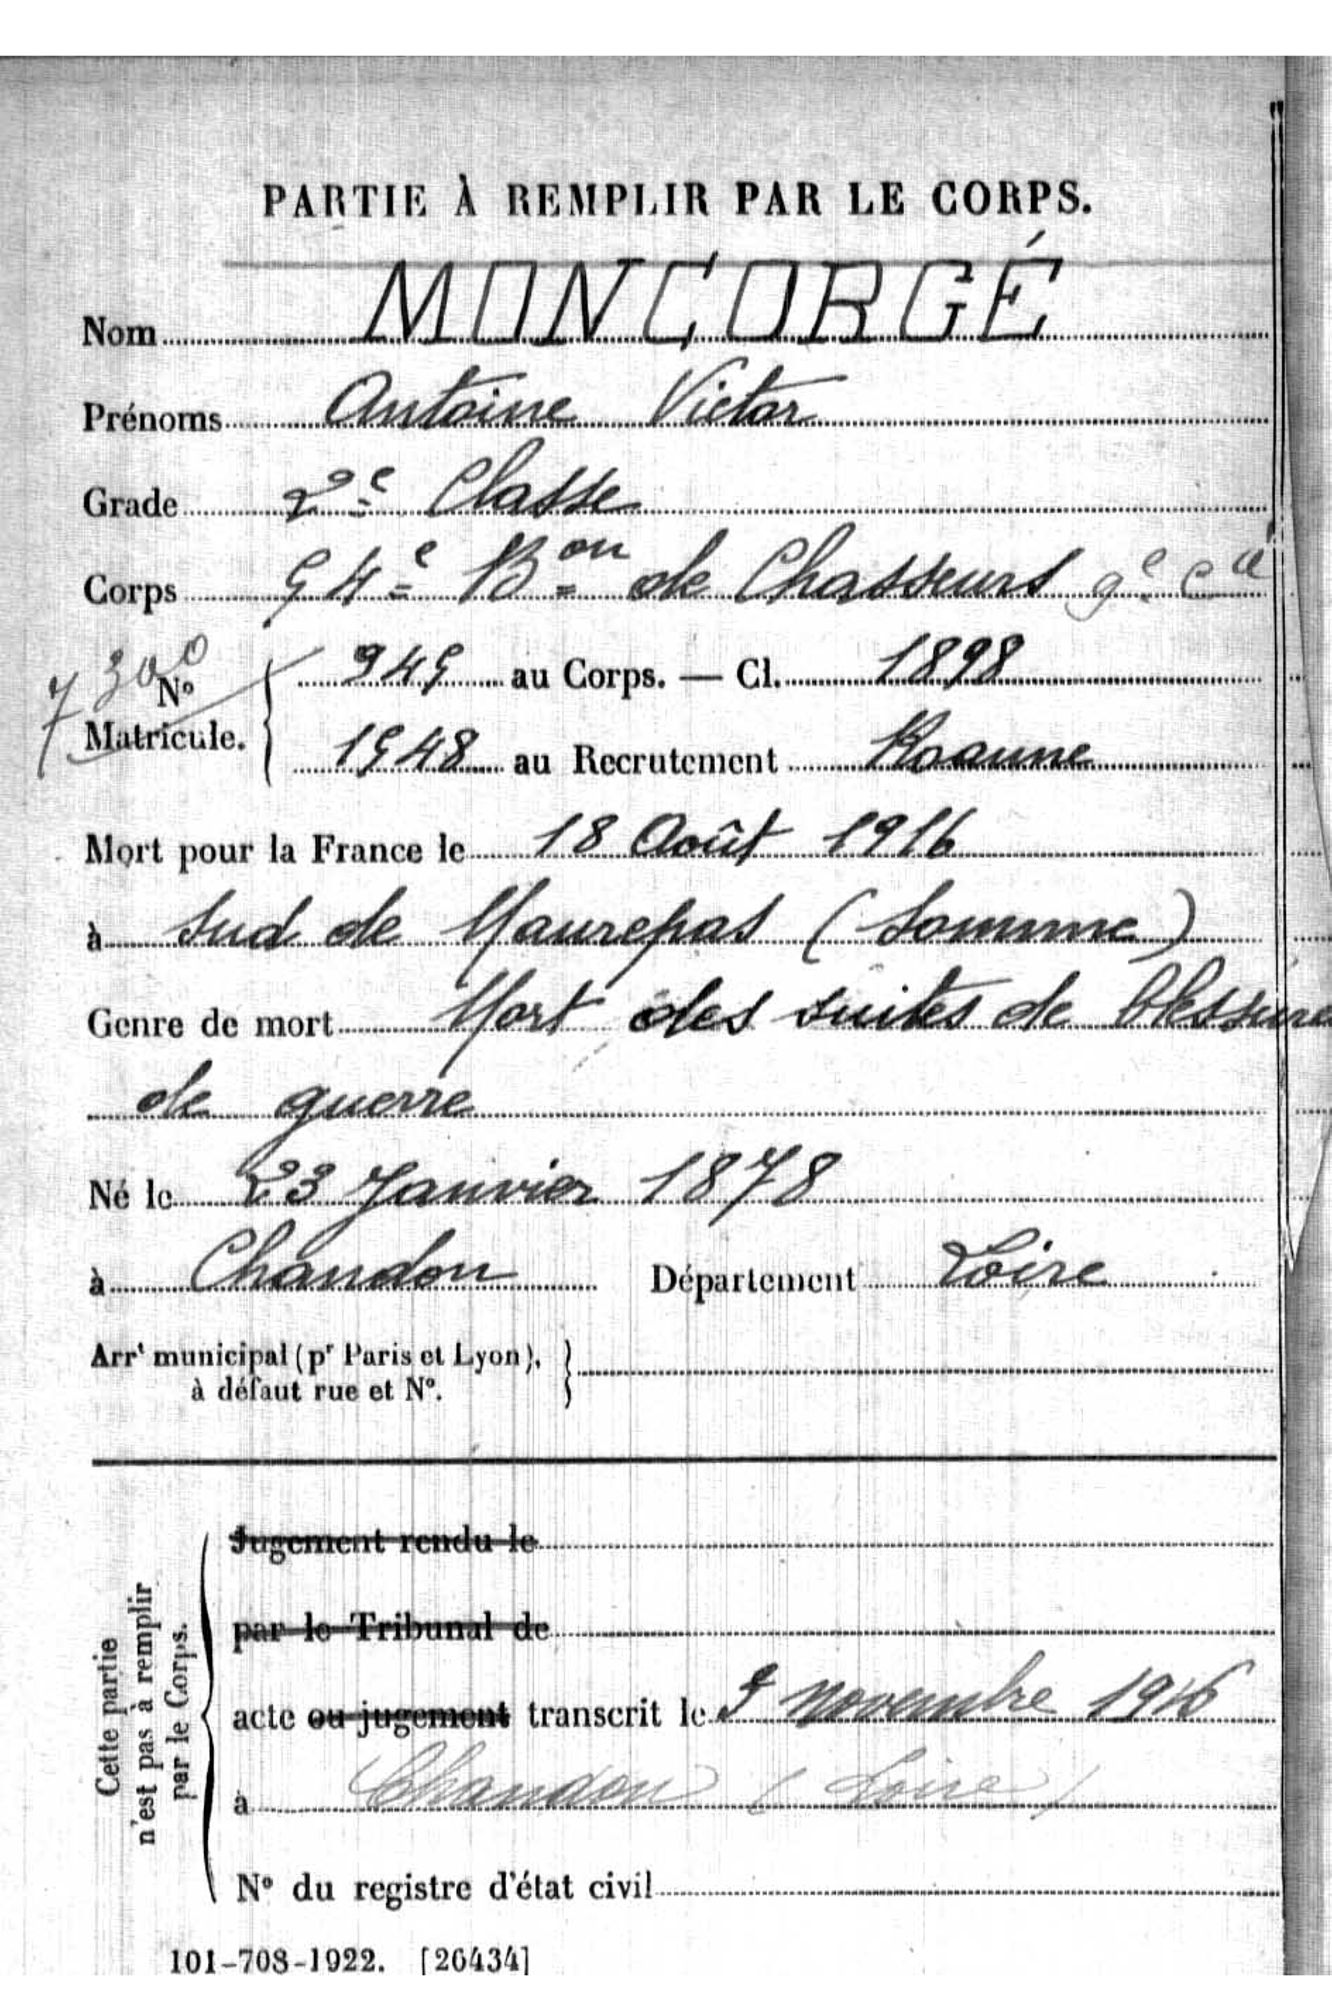 PARTIE À REMPLIR PAR LE CORPS.
Nom MONCORGÉ
Prénoms Antoine Victor
Grade 2e Classe
Corps 54e Bon de Chasseurs 9e Cie
7300
No Matricule. 945 au Corps. — Cl. 1898
1548 au Recrutement Roanne
Mort pour la France le 18 Août 1916
à Sud de Maurepas (Somme)
Genre de mort Mort des suites de blessures
de guerre
Né le 23 Janvier 1878
à Chandon Département Loire
Arrt municipal (pr Paris et Lyon),
à défaut rue et No.
Cette partie
n'est pas à remplir
par le Corps.
Jugement rendu le
par le Tribunal de
acte ou jugement transcrit le novembre 1916
à Chandon (Loire)
No du registre d'état civil
101-708-1922. [26434]